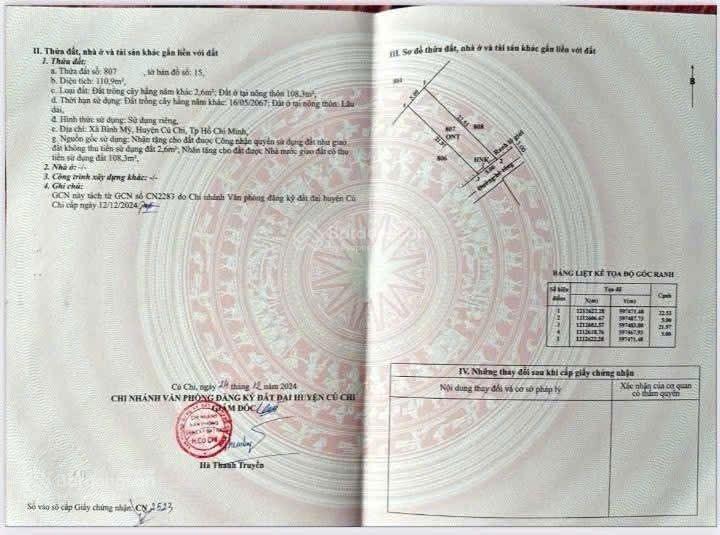 II. Thửa đất, nhà ở và tài sản khác gắn liền với đất
1. Thửa đất:
a. Thửa đất số: 807 , tờ bản đồ số: 15,
b. Diện tích: 110,9m²,
c. Loại đất: Đất trồng cây hằng năm khác 2,6m²; Đất ở tại nông thôn 108,3m²,
d. Thời hạn sử dụng: Đất trồng cây hằng năm khác: 16/05/2067; Đất ở tại nông thôn: Lâu
dài,
đ. Hình thức sử dụng: Sử dụng riêng,
e. Địa chỉ: Xã Bình Mỹ, Huyện Củ Chi, Tp Hồ Chí Minh,
g. Nguồn gốc sử dụng: Nhận tặng cho đất được Công nhận quyền sử dụng đất như giao
đất không thu tiền sử dụng đất 2,6m²; Nhận tặng cho đất được Nhà nước giao đất có thu
tiền sử dụng đất 108,3m²,
2. Nhà ở: -/-
3. Công trình xây dựng khác: -/-
4. Ghi chú:
GCN này tách từ GCN số CN2283 do Chi nhánh Văn phòng đăng ký đất đai huyện Củ
Chi cấp ngày 12/12/2024
Củ Chi, ngày 24 tháng 12 năm 2024
CHI NHÁNH VĂN PHÒNG ĐĂNG KÝ ĐẤT ĐAI HUYỆN CỦ CHI
GIÁM ĐỐC
CHI NHÁNH
VĂN PHÒNG
H.CỦ CHI
Hà Thanh Truyền
Số vào sổ cấp Giấy chứng nhận: CN 2523
III. Sơ đồ thửa đất, nhà ở và tài sản khác gắn liền với đất
B
807
ONT
808
806
HNK
22.53
21.97
5.00
Ranh lộ giới
Đường bê tông
BẢNG LIỆT KÊ TỌA ĐỘ GÓC RANH
Số hiệu điểm Tọa độ Cạnh
X(m) Y(m)
1 1212622.28 597471.48 22.53
2 1212606.67 597487.73 5.00
3 1212602.57 597483.00 21.97
4 1212618.76 597467.93 5.00
5 1212622.28 597471.48
IV. Những thay đổi sau khi cấp giấy chứng nhận
Nội dung thay đổi và cơ sở pháp lý
Xác nhận của cơ quan
có thẩm quyền